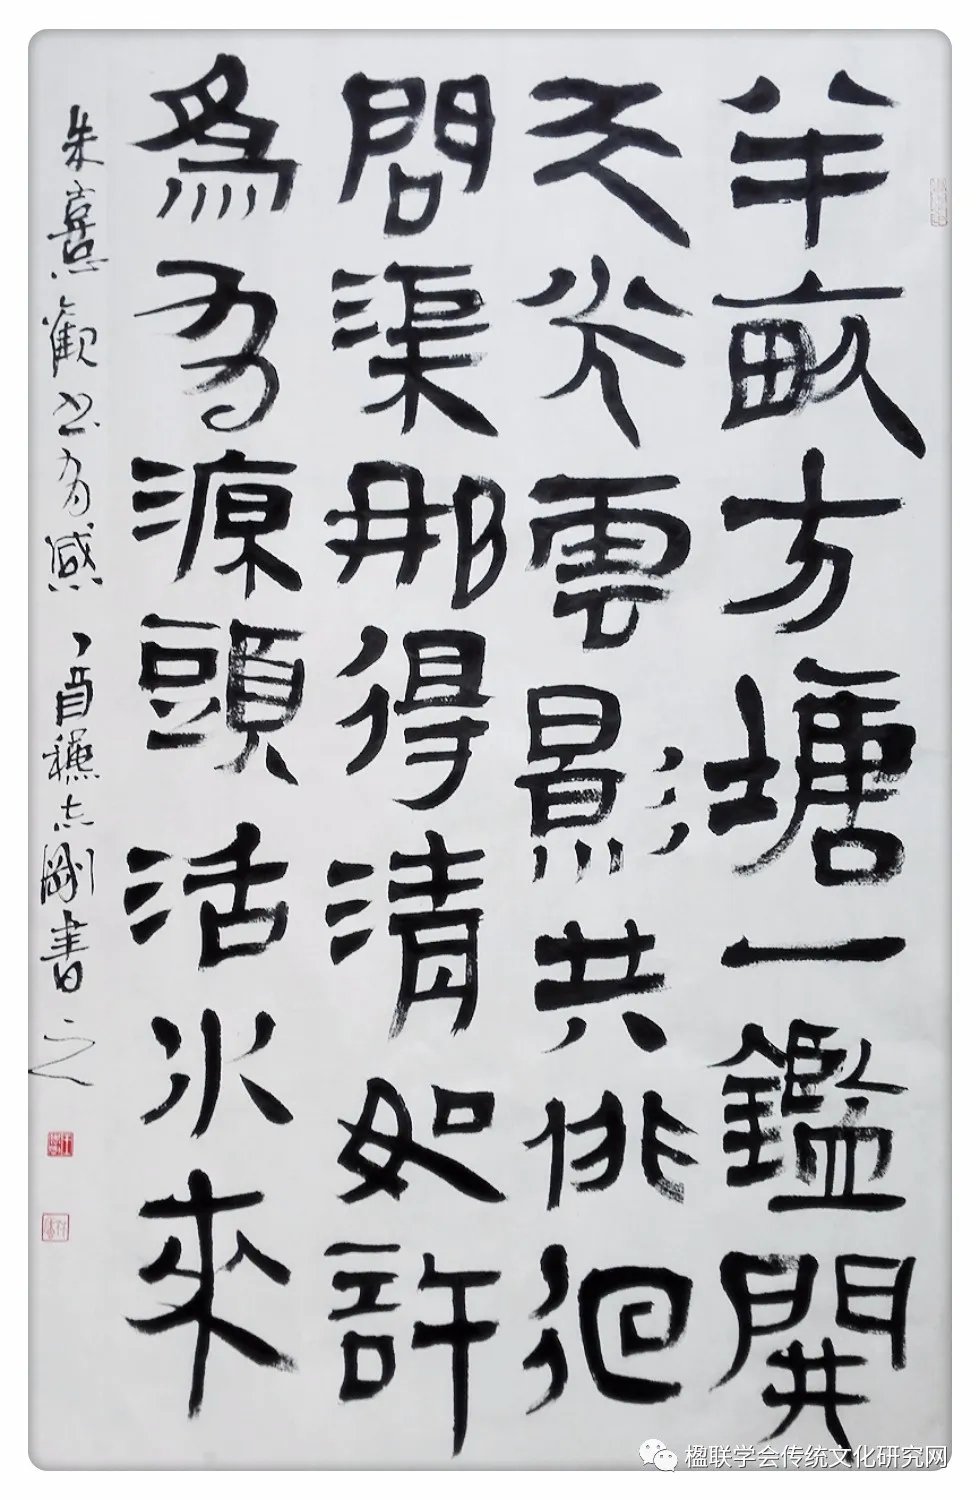 半畝方塘一鑑開
天光雲影共俳徊
問渠那得清如許
爲有源頭活水來
朱熹觀书有感 丁酉 志剛書之
楹联学会传统文化研究网